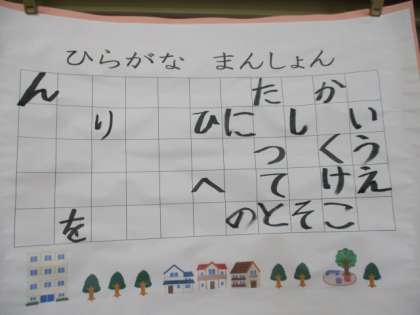 ひらがな まんしょん
いうえ
かくけこ
しそ
たつてと
にの
ひへ
り
を
ん